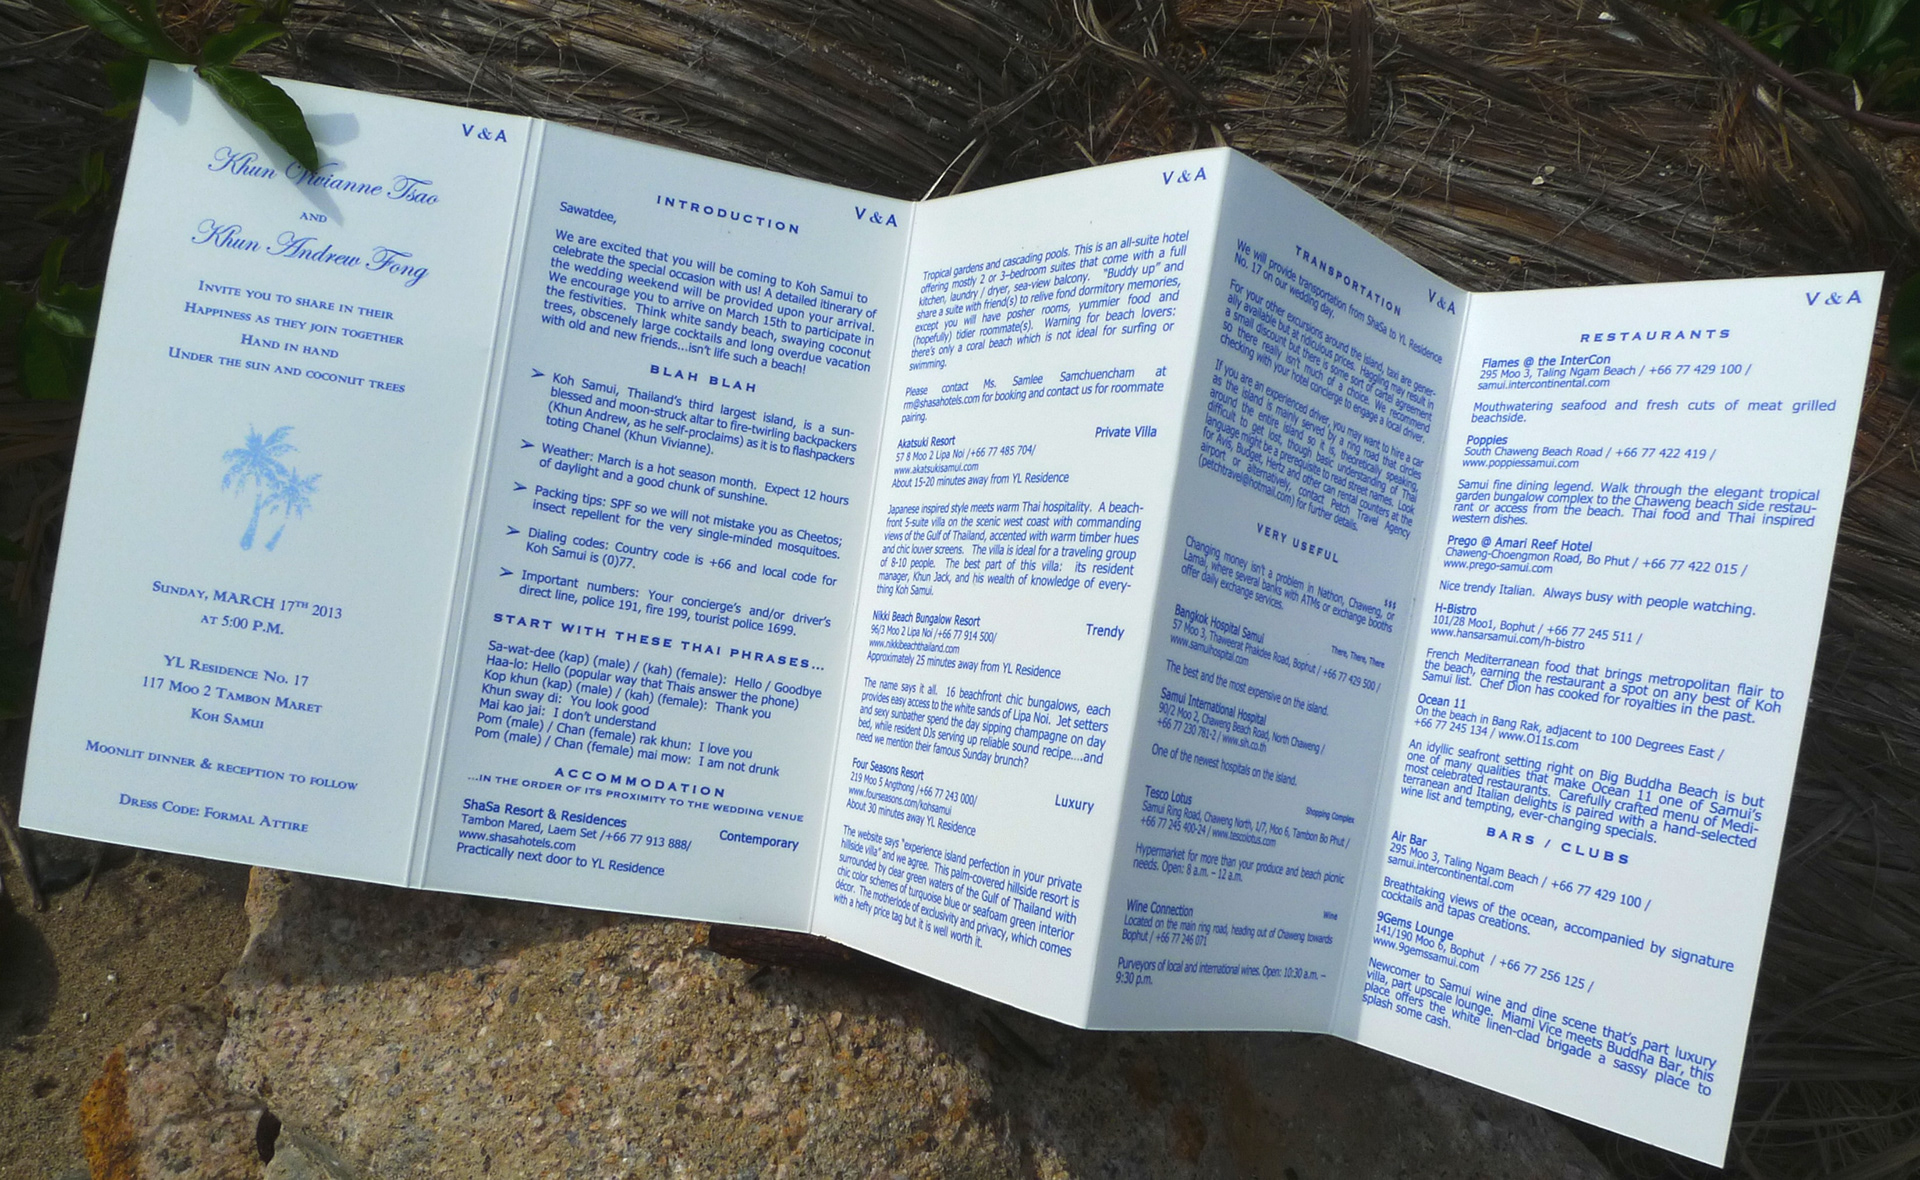 V & A
Khun Vivianne Tsao
AND
Khun Andrew Fong
INVITE YOU TO SHARE IN THEIR
HAPPINESS AS THEY JOIN TOGETHER
HAND IN HAND
UNDER THE SUN AND COCONUT TREES
SUNDAY, MARCH 17TH 2013
AT 5:00 P.M.
YL RESIDENCE NO. 17
117 MOO 2 TAMBON MARET
KOH SAMUI
MOONLIT DINNER & RECEPTION TO FOLLOW
DRESS CODE: FORMAL ATTIRE
V & A
INTRODUCTION
Sawatdee,
We are excited that you will be coming to Koh Samui to
celebrate the special occasion with us! A detailed itinerary of
the wedding weekend will be provided upon your arrival.
We encourage you to arrive on March 15th to participate in
the festivities. Think white sandy beach, swaying coconut
trees, obscenely large cocktails and long overdue vacation
with old and new friends...isn't life such a beach!
BLAH BLAH
➢ Koh Samui, Thailand's third largest island, is a sun-
blessed and moon-struck altar to fire-twirling backpackers
(Khun Andrew, as he self-proclaims) as it is to flashpackers
toting Chanel (Khun Vivianne).
➢ Weather: March is a hot season month. Expect 12 hours
of daylight and a good chunk of sunshine.
➢ Packing tips: SPF so we will not mistake you as Cheetos;
insect repellent for the very single-minded mosquitoes.
➢ Dialing codes: Country code is +66 and local code for
Koh Samui is (0)77.
➢ Important numbers: Your concierge's and/or driver's
direct line, police 191, fire 199, tourist police 1699.
START WITH THESE THAI PHRASES...
Sa-wat-dee (kap) (male) / (kah) (female): Hello / Goodbye
Haa-lo: Hello (popular way that Thais answer the phone)
Kop khun (kap) (male) / (kah) (female): Thank you
Khun sway di: You look good
Mai kao jai: I don't understand
Pom (male) / Chan (female) rak khun: I love you
Pom (male) / Chan (female) mai mow: I am not drunk
ACCOMMODATION
...IN THE ORDER OF ITS PROXIMITY TO THE WEDDING VENUE
ShaSa Resort & Residences Contemporary
Tambon Mared, Laem Set /+66 77 913 888/
www.shasahotels.com
Practically next door to YL Residence
V & A
Tropical gardens and cascading pools. This is an all-suite hotel
offering mostly 2 or 3-bedroom suites that come with a full
kitchen, laundry / dryer, sea-view balcony. "Buddy up" and
share a suite with friend(s) to relive fond dormitory memories,
except you will have posher rooms, yummier food and
(hopefully) tidier roommate(s). Warning for beach lovers:
there's only a coral beach which is not ideal for surfing or
swimming.
Please contact Ms. Samlee Samchuencham at
rm@shasahotels.com for booking and contact us for roommate
pairing.
Akatsuki Resort Private Villa
57 8 Moo 2 Lipa Noi /+66 77 485 704/
www.akatsukisamui.com
About 15-20 minutes away from YL Residence
Japanese inspired style meets warm Thai hospitality. A beach-
front 5-suite villa on the scenic west coast with commanding
views of the Gulf of Thailand, accented with warm timber hues
and chic louver screens. The villa is ideal for a traveling group
of 8-10 people. The best part of this villa: its resident
manager, Khun Jack, and his wealth of knowledge of every-
thing Koh Samui.
Nikki Beach Bungalow Resort Trendy
96/3 Moo 2 Lipa Noi /+66 77 914 500/
www.nikkibeachthailand.com
Approximately 25 minutes away from YL Residence
The name says it all. 16 beachfront chic bungalows, each
provides easy access to the white sands of Lipa Noi. Jet setters
and sexy sunbather spend the day sipping champagne on day
bed, while resident DJs serving up reliable sound recipe....and
need we mention their famous Sunday brunch?
Four Seasons Resort Luxury
219 Moo 5 Angthong /+66 77 243 000/
www.fourseasons.com/kohsamui
About 30 minutes away YL Residence
The website says "experience island perfection in your private
hillside villa" and we agree. This palm-covered hillside resort is
surrounded by clear green waters of the Gulf of Thailand with
chic color schemes of turquoise blue or seafoam green interior
décor. The motherlode of exclusivity and privacy, which comes
with a hefty price tag but it is well worth it.
V & A
TRANSPORTATION
We will provide transportation from ShaSa to YL Residence
No. 17 on our wedding day.
For your other excursions around the island, taxi are gener-
ally available but at ridiculous prices. Haggling may result in
a small discount but there is some sort of cartel agreement
so there really isn't much of a choice. We recommend
checking with your hotel concierge to engage a local driver.
If you are an experienced driver, you may want to hire a car
as the island is mainly served by a ring road that circles
around the entire island so it is, theoretically speaking,
difficult to get lost, though basic understanding of Thai
language might be a prerequisite to read street names. Look
for Avis, Budget, Hertz and other car rental counters at the
airport or alternatively, contact Petch Travel Agency
(petchtravel@hotmail.com) for further details.
VERY USEFUL
$$$
Changing money isn't a problem in Nathon, Chaweng, or
Lamai, where several banks with ATMs or exchange booths
offer daily exchange services.
Bangkok Hospital Samui There, There, There
57 Moo 3, Thaweerat Phakdee Road, Bophut / +66 77 429 500 /
www.samuihospital.com
The best and the most expensive on the island.
Samui International Hospital
90/2 Moo 2, Chaweng Beach Road, North Chaweng /
+66 77 230 781-2 / www.sih.co.th
One of the newest hospitals on the island.
Tesco Lotus Shopping Complex
Samui Ring Road, Chaweng North, 1/7, Moo 6, Tambon Bo Phut /
+66 77 245 400-24 / www.tescolotus.com
Hypermarket for more than your produce and beach picnic
needs. Open: 8 a.m. – 12 a.m.
Wine Connection Wine
Located on the main ring road, heading out of Chaweng towards
Bophut / +66 77 246 071
Purveyors of local and international wines. Open: 10:30 a.m. –
9:30 p.m.
V & A
RESTAURANTS
Flames @ the InterCon
295 Moo 3, Taling Ngam Beach / +66 77 429 100 /
samui.intercontinental.com
Mouthwatering seafood and fresh cuts of meat grilled
beachside.
Poppies
South Chaweng Beach Road / +66 77 422 419 /
www.poppiessamui.com
Samui fine dining legend. Walk through the elegant tropical
garden bungalow complex to the Chaweng beach side restau-
rant or access from the beach. Thai food and Thai inspired
western dishes.
Prego @ Amari Reef Hotel
Chaweng-Choengmon Road, Bo Phut / +66 77 422 015 /
www.prego-samui.com
Nice trendy Italian. Always busy with people watching.
H-Bistro
101/28 Moo1, Bophut / +66 77 245 511 /
www.hansarsamui.com/h-bistro
French Mediterranean food that brings metropolitan flair to
the beach, earning the restaurant a spot on any best of Koh
Samui list. Chef Dion has cooked for royalties in the past.
Ocean 11
On the beach in Bang Rak, adjacent to 100 Degrees East /
+66 77 245 134 / www.O11s.com
An idyllic seafront setting right on Big Buddha Beach is but
one of many qualities that make Ocean 11 one of Samui's
most celebrated restaurants. Carefully crafted menu of Medi-
terranean and Italian delights is paired with a hand-selected
wine list and tempting, ever-changing specials.
BARS / CLUBS
Air Bar
295 Moo 3, Taling Ngam Beach / +66 77 429 100 /
samui.intercontinental.com
Breathtaking views of the ocean, accompanied by signature
cocktails and tapas creations.
9Gems Lounge
141/190 Moo 6, Bophut / +66 77 256 125 /
www.9gemssamui.com
Newcomer to Samui wine and dine scene that's part luxury
villa, part upscale lounge. Miami Vice meets Buddha Bar, this
place offers the white linen-clad brigade a sassy place to
splash some cash.